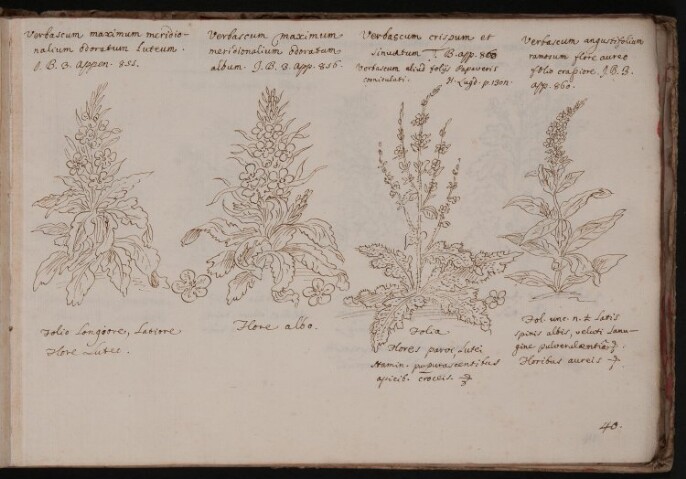 Verbascum maximum meridio-
nalium odoratum luteum.
J. B. 3. Appen. 855.
Verbascum maximum
meridionalium odoratum
album. J. B. 3. App. 856.
Verbascum crispum et
sinuatum J. B. App. 860
Verbascum aliud folijs Papaveris
corniculati.
H. Lugd. p. 1301.
Verbascum angustifolium
ramosum flore aureo
folio crasiore J. B. 3.
App. 860.
Folio Longiore, Latiore
Flore Luteo.
Flore albo.
Folia
Flores parvi, Lutei
stamin. purpurascentibus
apicib. croceis.
Fol. unc. Latis
spinis albis, veluti Lanu-
gine pulverulentis
Floribus aureis
40.